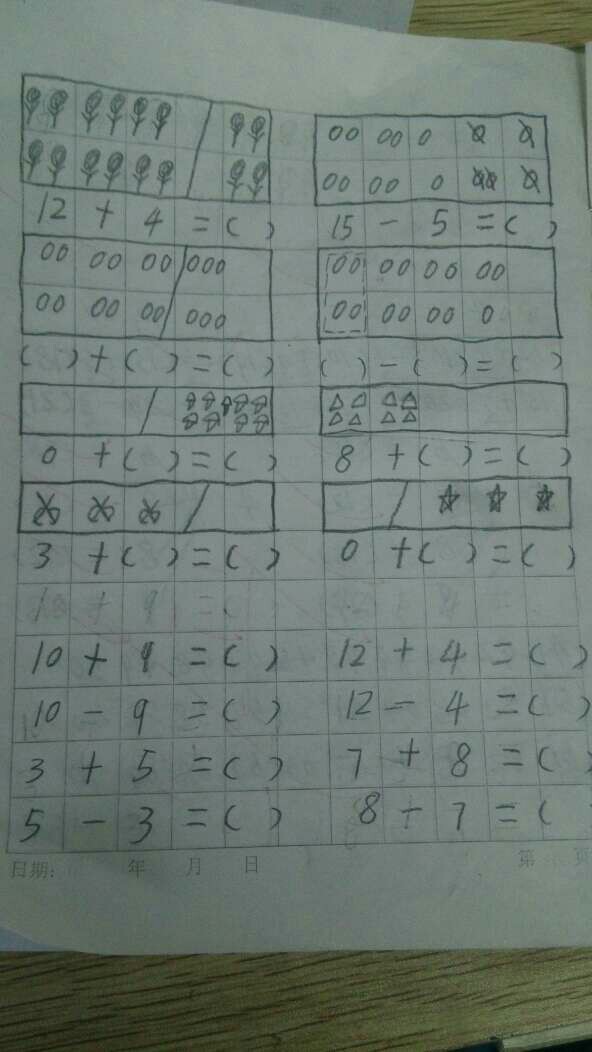 12 + 4 = ( ) 15 - 5 = ( )
( ) + ( ) = ( ) ( ) - ( ) = ( )
0 + ( ) = ( ) 8 + ( ) = ( )
3 + ( ) = ( ) 0 + ( ) = ( )
10 + 9 = ( ) 12 + 4 = ( )
10 - 9 = ( ) 12 - 4 = ( )
3 + 5 = ( ) 7 + 8 = ( )
5 - 3 = ( ) 8 - 7 = (
日期: 年 月 日 第 页